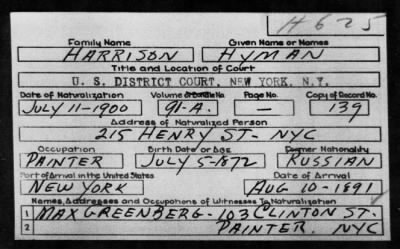 H 625
Family Name Given Name or Names
HARRISON HYMAN
Title and Location of Court
U. S. DISTRICT COURT, NEW YORK, N.Y.
Date of Naturalization Volume Page No. Copy of Record No.
JULY 11-1900 91-A. — 139
Address of Naturalized Person
215 HENRY ST- NYC
Occupation Birth Date or Age Former Nationality
PAINTER JULY 5-1872 RUSSIAN
Port of Arrival in the United States Date of Arrival
NEW YORK AUG 10-1891
Names, Addresses and Occupations of Witnesses To Naturalization
1 MAX GREENBERG-103 CLINTON ST.
2 PAINTER. NYC